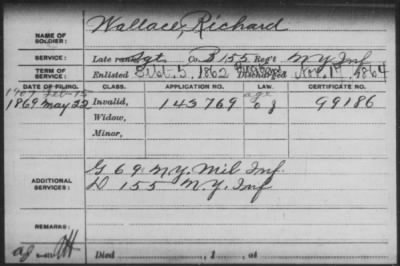 NAME OF SOLDIER: Wallace, Richard
SERVICE: Late rank, Sgt. Co. B 155 Reg't N.Y. Inf.
TERM OF SERVICE: Enlisted Sept. 5, 1862 Discharged Nov. 17, 1864
DATE OF FILING. CLASS. APPLICATION NO. LAW. CERTIFICATE NO.
1869 May 22 Invalid, 143769 G 99186
Widow,
Minor,
ADDITIONAL SERVICES: G 69 N.Y. Mil Inf
D 155 N.Y. Inf
REMARKS:
Died , 1 , at